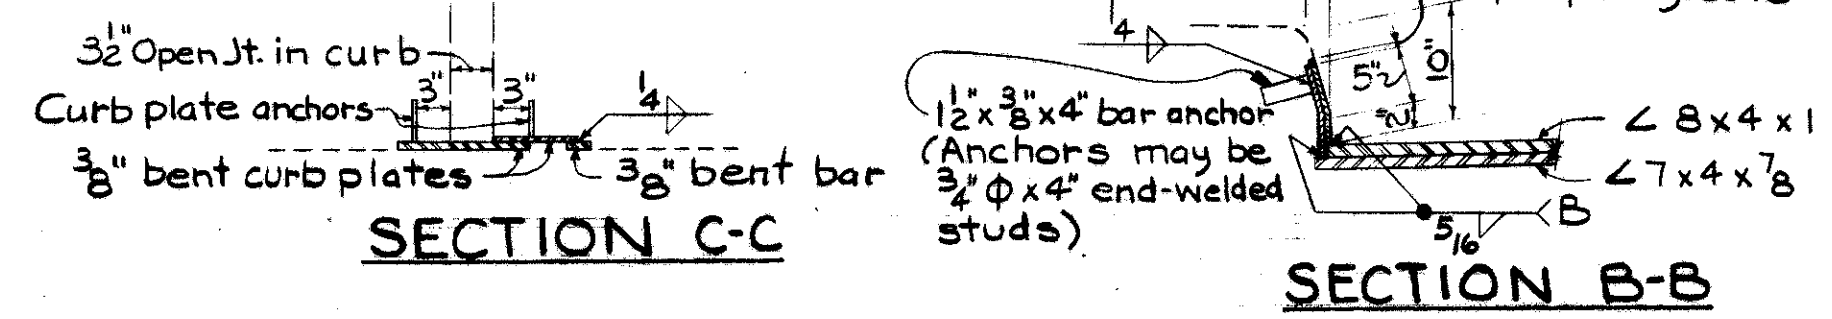 3½" Open Jt. in curb
3" 3"
Curb plate anchors
1/4
3/8" bent curb plates
3/8" bent bar
SECTION C-C
1/4
1½" x 3/8" x 4" bar anchor
(Anchors may be
3/4" Φ x 4" end-welded
studs)
5½"
2"
10"
∠ 8 x 4 x 1
∠ 7 x 4 x 7/8
B
5/16
SECTION B-B